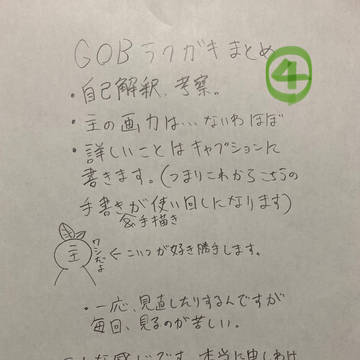 GOBラクガキまとめ
④
・自己解釈、考察。
・主の画力は…ないわほぼ
・詳しいことはキャプションに
書きます。(つまりこれからこちらの
手書きが使い回しになります)
&手描き
主
ワシだよ
←こいつが好き勝手します。
・一応、見直したりするんですが
毎回、見るのが苦しい。
こんな感じです。本当に申しわけ